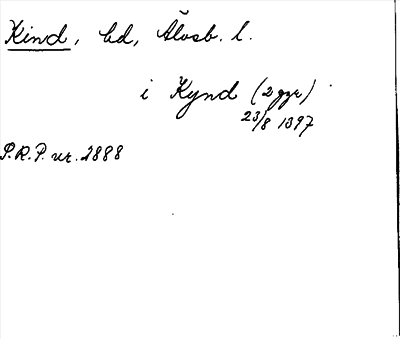 Kind, hd, Älvsb. l.
i Kynd (2 ggr)
23/8 1397
P.R.P. nr. 2888